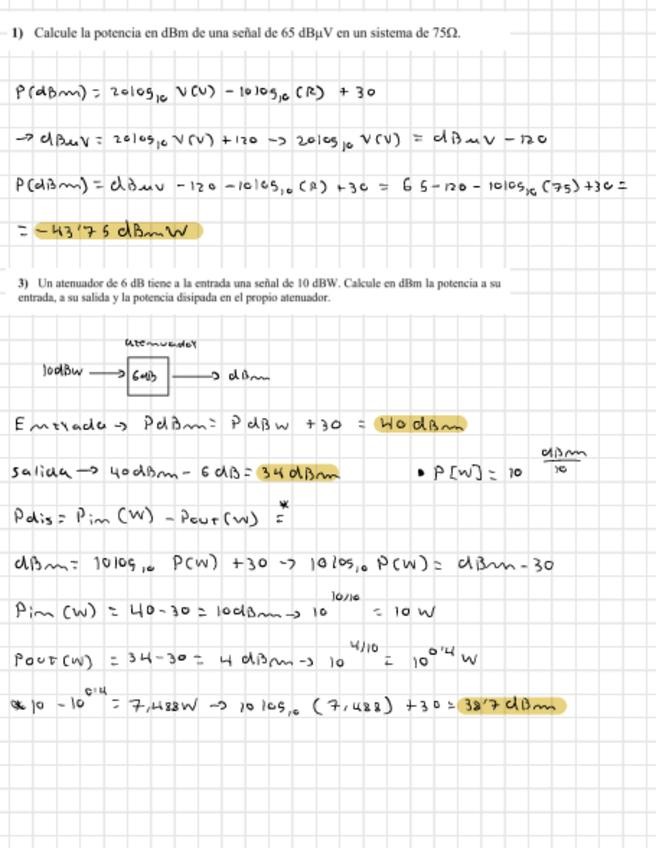 1) Calcule la potencia en dBm de una señal de 65 dBµV en un sistema de 75Ω.
P(dBm) = 20log₁₀ V(V) - 10log₁₀ (R) + 30
→ dBuV = 20log₁₀ V(V) + 120 → 20log₁₀ V(V) = dBuV - 120
P(dBm) = dBuV - 120 - 10log₁₀ (R) + 30 = 65 - 120 - 10log₁₀ (75) + 30 =
= -43'75 dBmW
3) Un atenuador de 6 dB tiene a la entrada una señal de 10 dBW. Calcule en dBm la potencia a su
entrada, a su salida y la potencia disipada en el propio atenuador.
atenuador
10dBW → 6dB → dBm
Entrada → PdBm = PdBW + 30 = 40 dBm
salida → 40dBm - 6dB = 34 dBm • P[W] = 10^(dBm/10)
Pdis = Pin (W) - Pout (W) = *
dBm = 10log₁₀ P(W) + 30 → 10log₁₀ P(W) = dBm - 30
Pin (W) = 40 - 30 = 10dBm → 10^(10/10) = 10 W
Pout (W) = 34 - 30 = 4 dBm → 10^(4/10) = 10^(0'4) W
* 10 - 10^(0'4) = 7,488W → 10log₁₀ (7,488) + 30 = 38'7 dBm